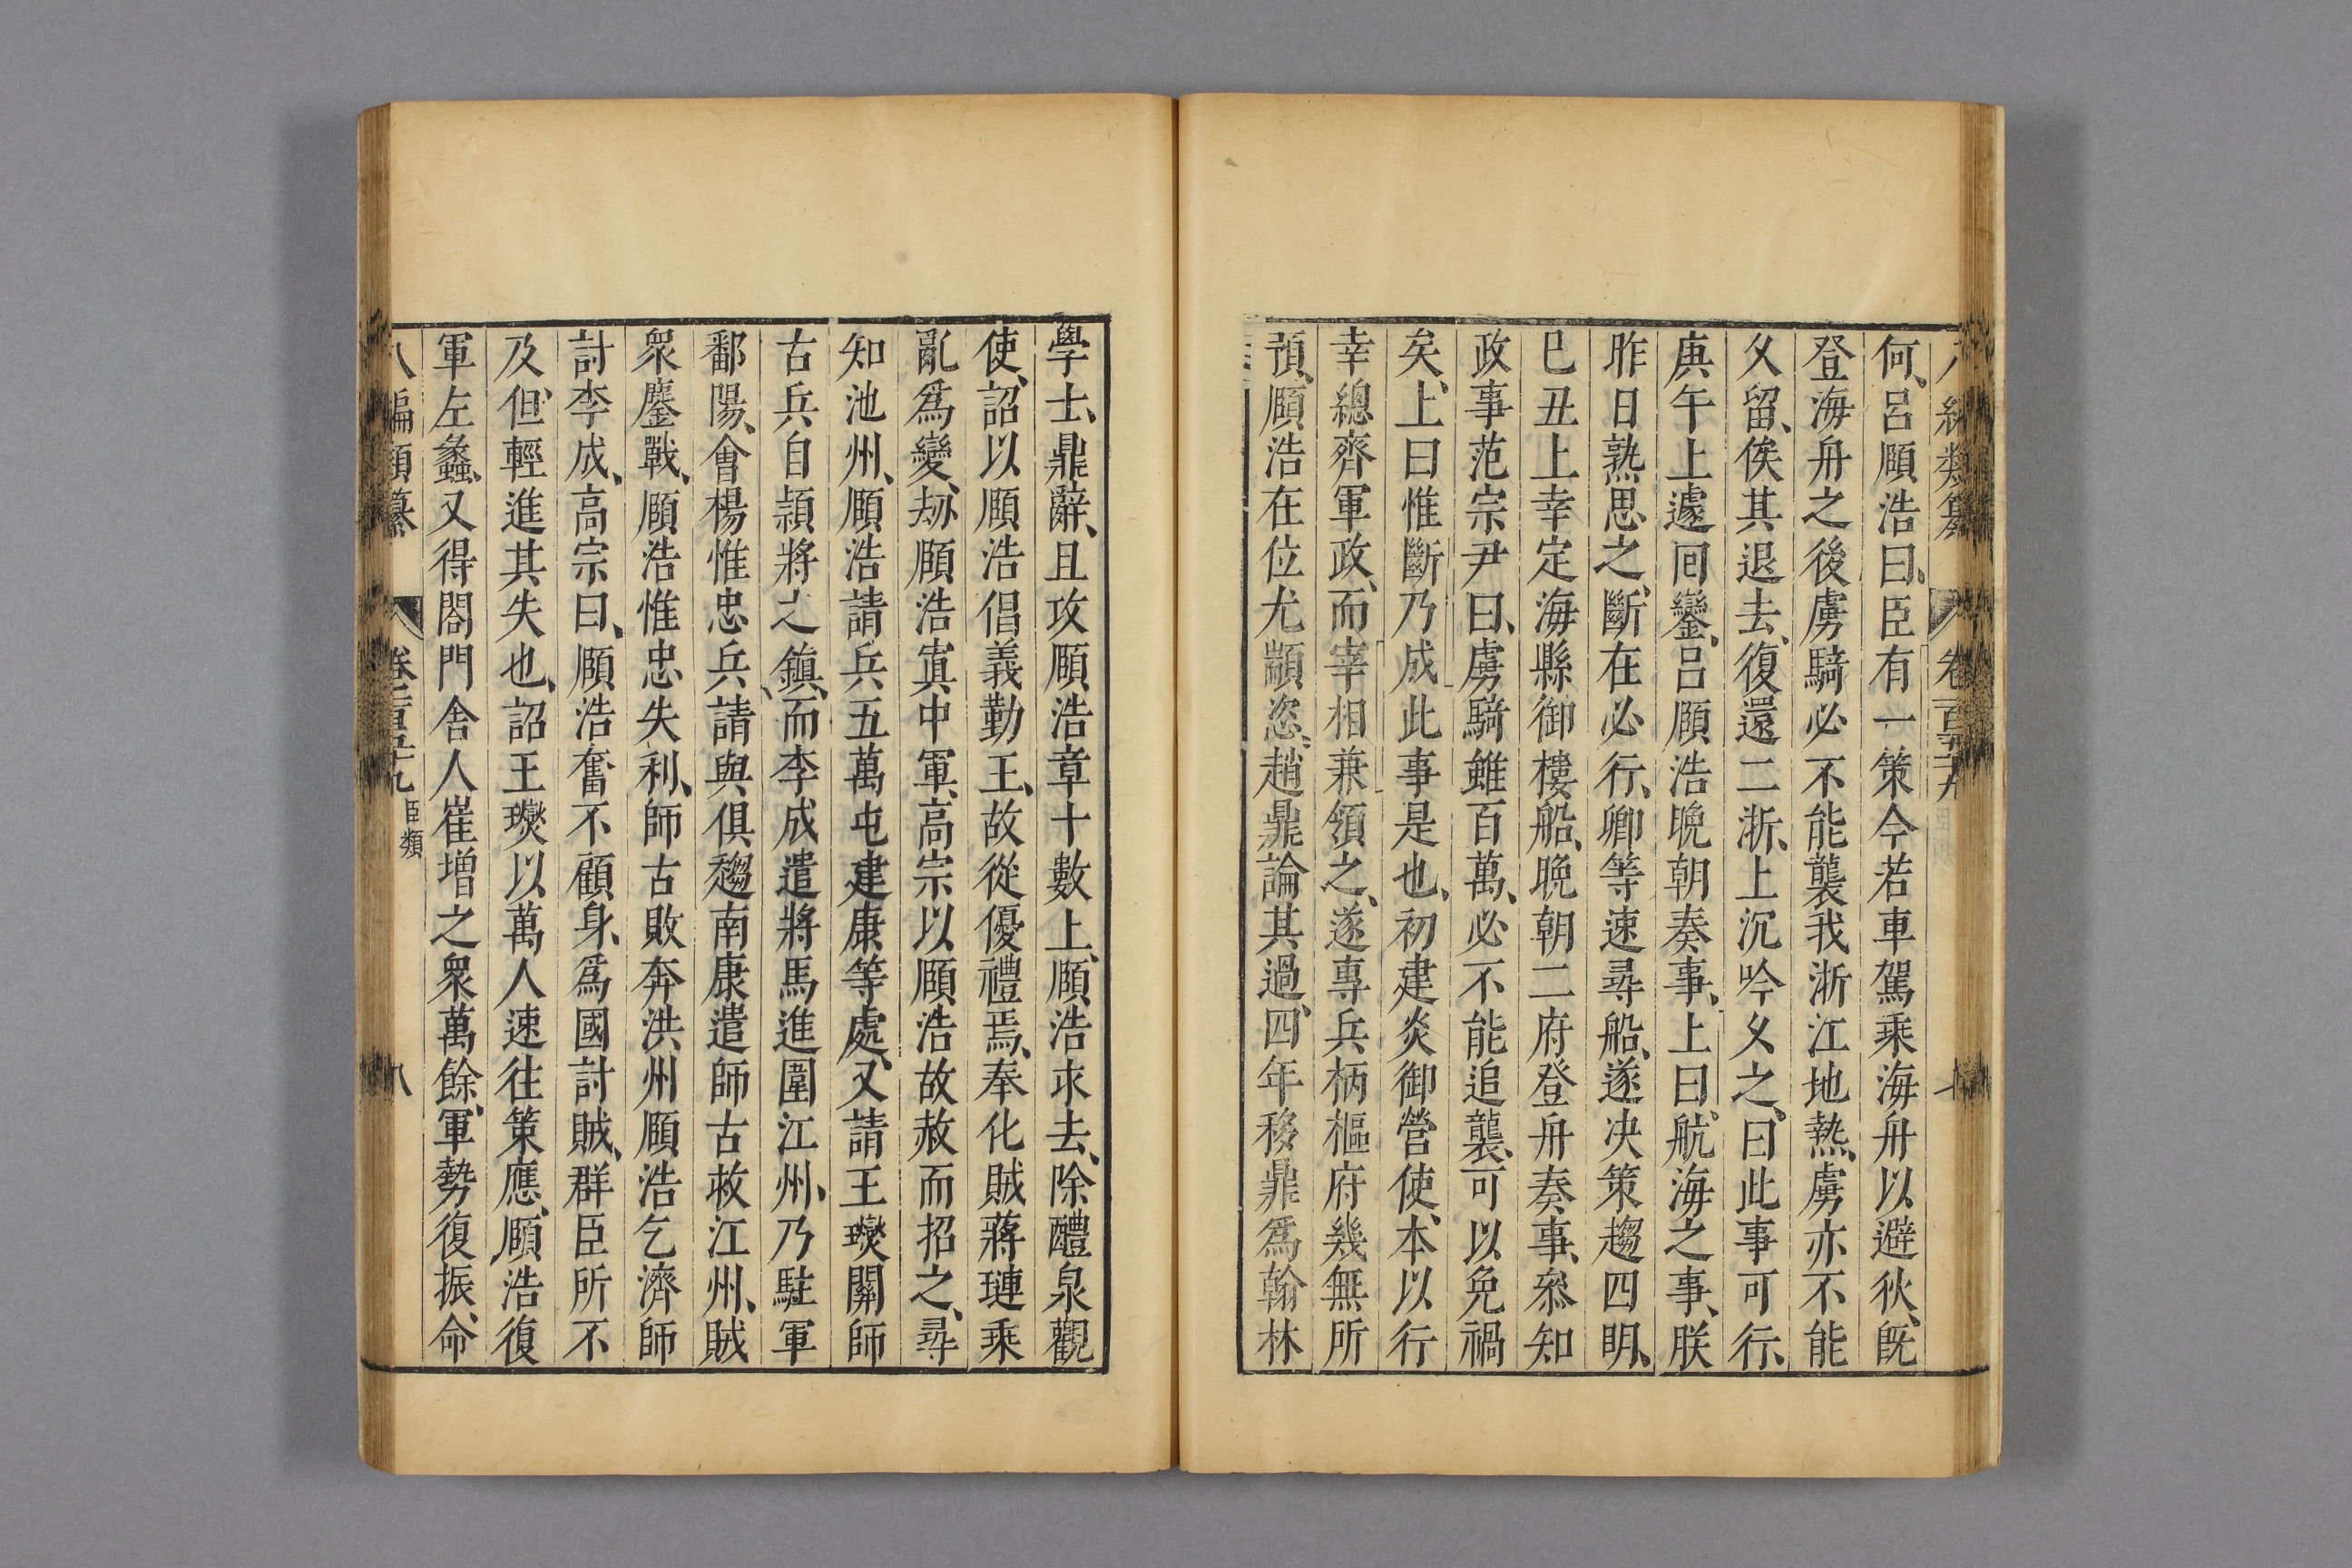 何、呂頤浩曰、臣有一策今若車駕乘海舟以避狄、旣
登海舟之後虜騎必不能襲我浙江地熱、虜亦不能
久留、俟其退去、復還二浙、上沉吟久之、曰此事可行、
庚午上遽囘鑾、呂頤浩晚朝奏事、上曰、航海之事、朕
昨日熟思之、斷在必行、卿等速尋船、遂决策趨四明、
巳丑上幸定海縣御樓船、晚朝二府登舟奏事、叅知
政事范宗尹曰、虜騎雖百萬、必不能追襲、可以免禍
矣、上曰惟斷乃成此事是也、初建炎御營使、本以行
幸總齊軍政、而宰相兼領之、遂專兵柄樞府幾無所
預、頤浩在位尤顓恣、趙鼎論其過、四年移鼎爲翰林
學士、鼎辭、且攻頤浩章十數上、頤浩求去、除醴泉觀
使、詔以頤浩倡義勤王、故從優禮焉、奉化賊蔣璉乘
亂爲變、劫頤浩寘中軍、高宗以頤浩故赦而招之、尋
知池州、頤浩請兵五萬屯建康等處、又請王𤫉關師
古兵自頴將之鎮、而李成遣將馬進圍江州、乃駐軍
鄱陽、會楊惟忠兵、請與俱趨南康遣師古救江州、賊
衆鏖戰、頤浩惟忠失利、師古敗奔洪州頤浩乞濟師
討李成、高宗曰、頤浩奮不顧身、爲國討賊、群臣所不
及、但輕進其失也、詔王𤫉以萬人速往策應、頤浩復
軍左蠡、又得閤門舍人崔增之衆萬餘、軍勢復振、命
八編類纂 卷二百三十九 臣類 八